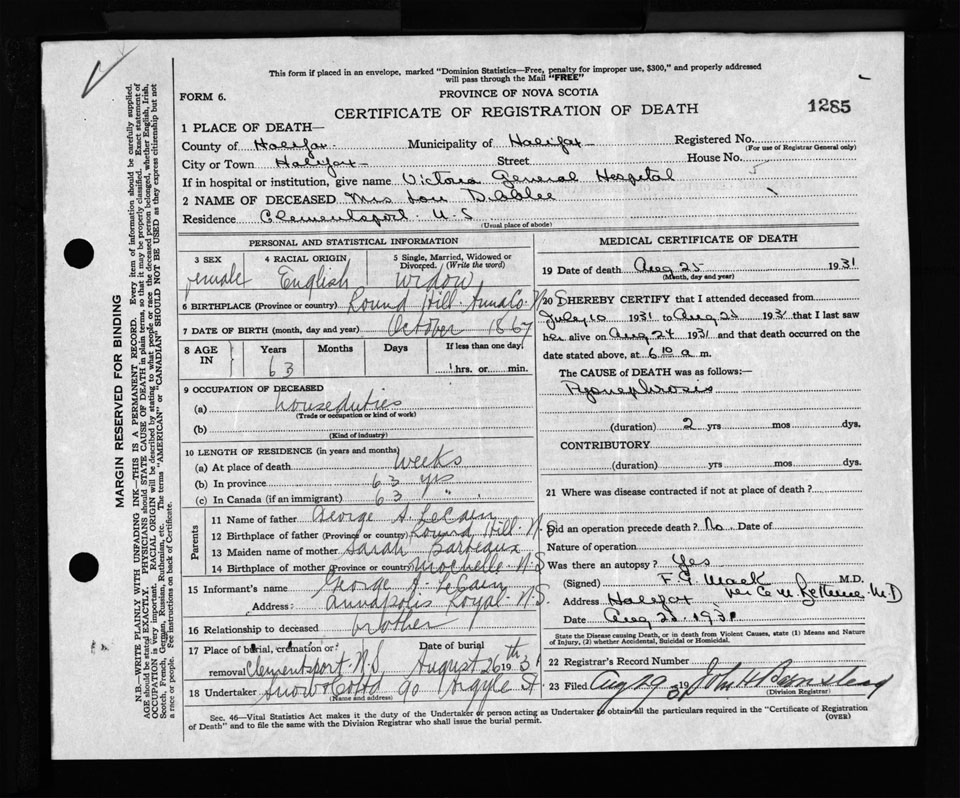 This form if placed in an envelope, marked "Dominion Statistics—Free, penalty for improper use, $300," and properly addressed
will pass through the Mail "FREE"
FORM 6.
PROVINCE OF NOVA SCOTIA
CERTIFICATE OF REGISTRATION OF DEATH
1285
1 PLACE OF DEATH—
County of Halifax Municipality of Halifax Registered No.
(For use of Registrar General only)
City or Town Halifax Street House No.
If in hospital or institution, give name Victoria General Hospital
2 NAME OF DECEASED Mrs Lou
Residence Clementsport N.S
(Usual place of abode)
PERSONAL AND STATISTICAL INFORMATION
3 SEX 4 RACIAL ORIGIN 5 Single, Married, Widowed or
Divorced. (Write the word)
female English Widow
6 BIRTHPLACE (Province or country) Round Hill Anna Co. N.S
7 DATE OF BIRTH (month, day and year) October 1867
8 AGE IN Years Months Days If less than one day,
63 hrs. or min.
9 OCCUPATION OF DECEASED
(a) houseduties
(Trade or occupation or kind of work)
(b)
(Kind of industry)
10 LENGTH OF RESIDENCE (in years and months)
(a) At place of death weeks
(b) In province 63 yrs
(c) In Canada (if an immigrant) 63 "
Parents
11 Name of father George A. LeCain
12 Birthplace of father (Province or country) Round Hill N.S
13 Maiden name of mother Sarah Barteaux
14 Birthplace of mother (Province or country) N.S
15 Informant's name George A. LeCain
Address: Annapolis Royal N.S.
16 Relationship to deceased brother
17 Place of burial, cremation or Date of burial
removal Clementsport N.S August 26th 1931
18 Undertaker Snow & Co Ltd 90 Argyle St
(Name and address)
MEDICAL CERTIFICATE OF DEATH
19 Date of death Aug 25 1931
(Month, day and year)
20 I HEREBY CERTIFY that I attended deceased from
July 10 1931 to Aug 25 1931 that I last saw
her alive on Aug 24 1931 and that death occurred on the
date stated above, at 6 10 a m.
The CAUSE of DEATH was as follows:—
Pyonephrosis
(duration) 2 yrs mos dys.
CONTRIBUTORY
(duration) yrs mos dys.
21 Where was disease contracted if not at place of death?
Did an operation precede death? No Date of
Nature of operation
Was there an autopsy? Yes
(Signed) F. G. Mack M.D.
Address Halifax per M.D
Date Aug 25. 1931
State the Disease causing Death, or in death from Violent Causes, state (1) Means and Nature
of Injury, (2) whether Accidental, Suicidal or Homicidal.
22 Registrar's Record Number
23 Filed Aug 29 1931 John H
(Division Registrar)
Sec. 46—Vital Statistics Act makes it the duty of the Undertaker or person acting as Undertaker to obtain all the particulars required in the "Certificate of Registration
of Death" and to file the same with the Division Registrar who shall issue the burial permit.
(OVER)
MARGIN RESERVED FOR BINDING
N.B.—WRITE PLAINLY WITH UNFADING INK—THIS IS A PERMANENT RECORD. Every item of information should be carefully supplied.
AGE should be stated EXACTLY. PHYSICIANS should STATE CAUSE OF DEATH in plain terms, so that it may be properly classified. Exact statement of
OCCUPATION is very important. RACIAL ORIGIN will be described by stating to what people or race the deceased person belonged, whether English, Irish,
Scotch, French, German, Russian, Ruthenian, etc. The terms "AMERICAN" or "CANADIAN" SHOULD NOT BE USED as they express citizenship but not
a race or people. See instructions on back of Certificate.